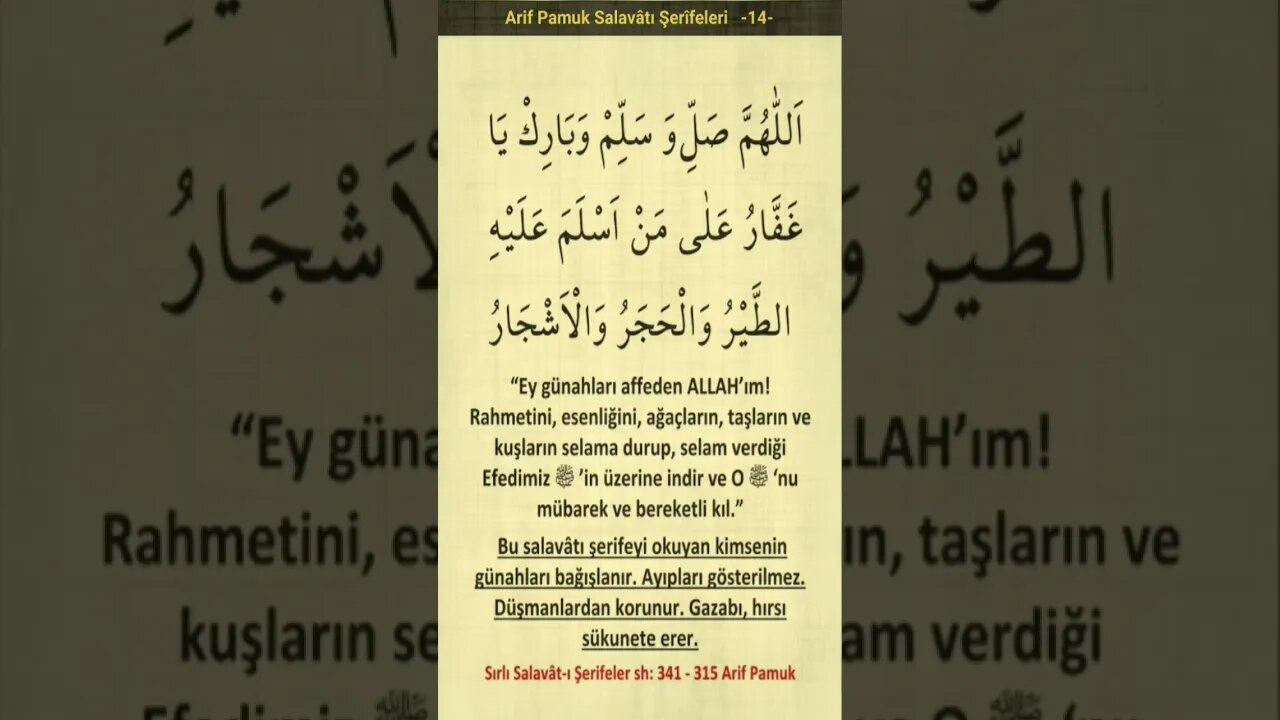 Arif Pamuk Salavâtı Şerîfeleri -14-
اَللّٰهُمَّ صَلِّ وَ سَلِّمْ وَبَارِكْ يَا
غَفَّارُ عَلٰى مَنْ اَسْلَمَ عَلَيْهِ
الطَّيْرُ وَالْحَجَرُ وَالْاَشْجَارُ
“Ey günahları affeden ALLAH’ım!
Rahmetini, esenliğini, ağaçların, taşların ve
kuşların selama durup, selam verdiği
Efedimiz ﷺ ’in üzerine indir ve O ﷺ ‘nu
mübarek ve bereketli kıl.”
Bu salavâtı şerifeyi okuyan kimsenin
günahları bağışlanır. Ayıpları gösterilmez.
Düşmanlardan korunur. Gazabı, hırsı
sükunete erer.
Sırlı Salavât-ı Şerifeler sh: 341 - 315 Arif Pamuk